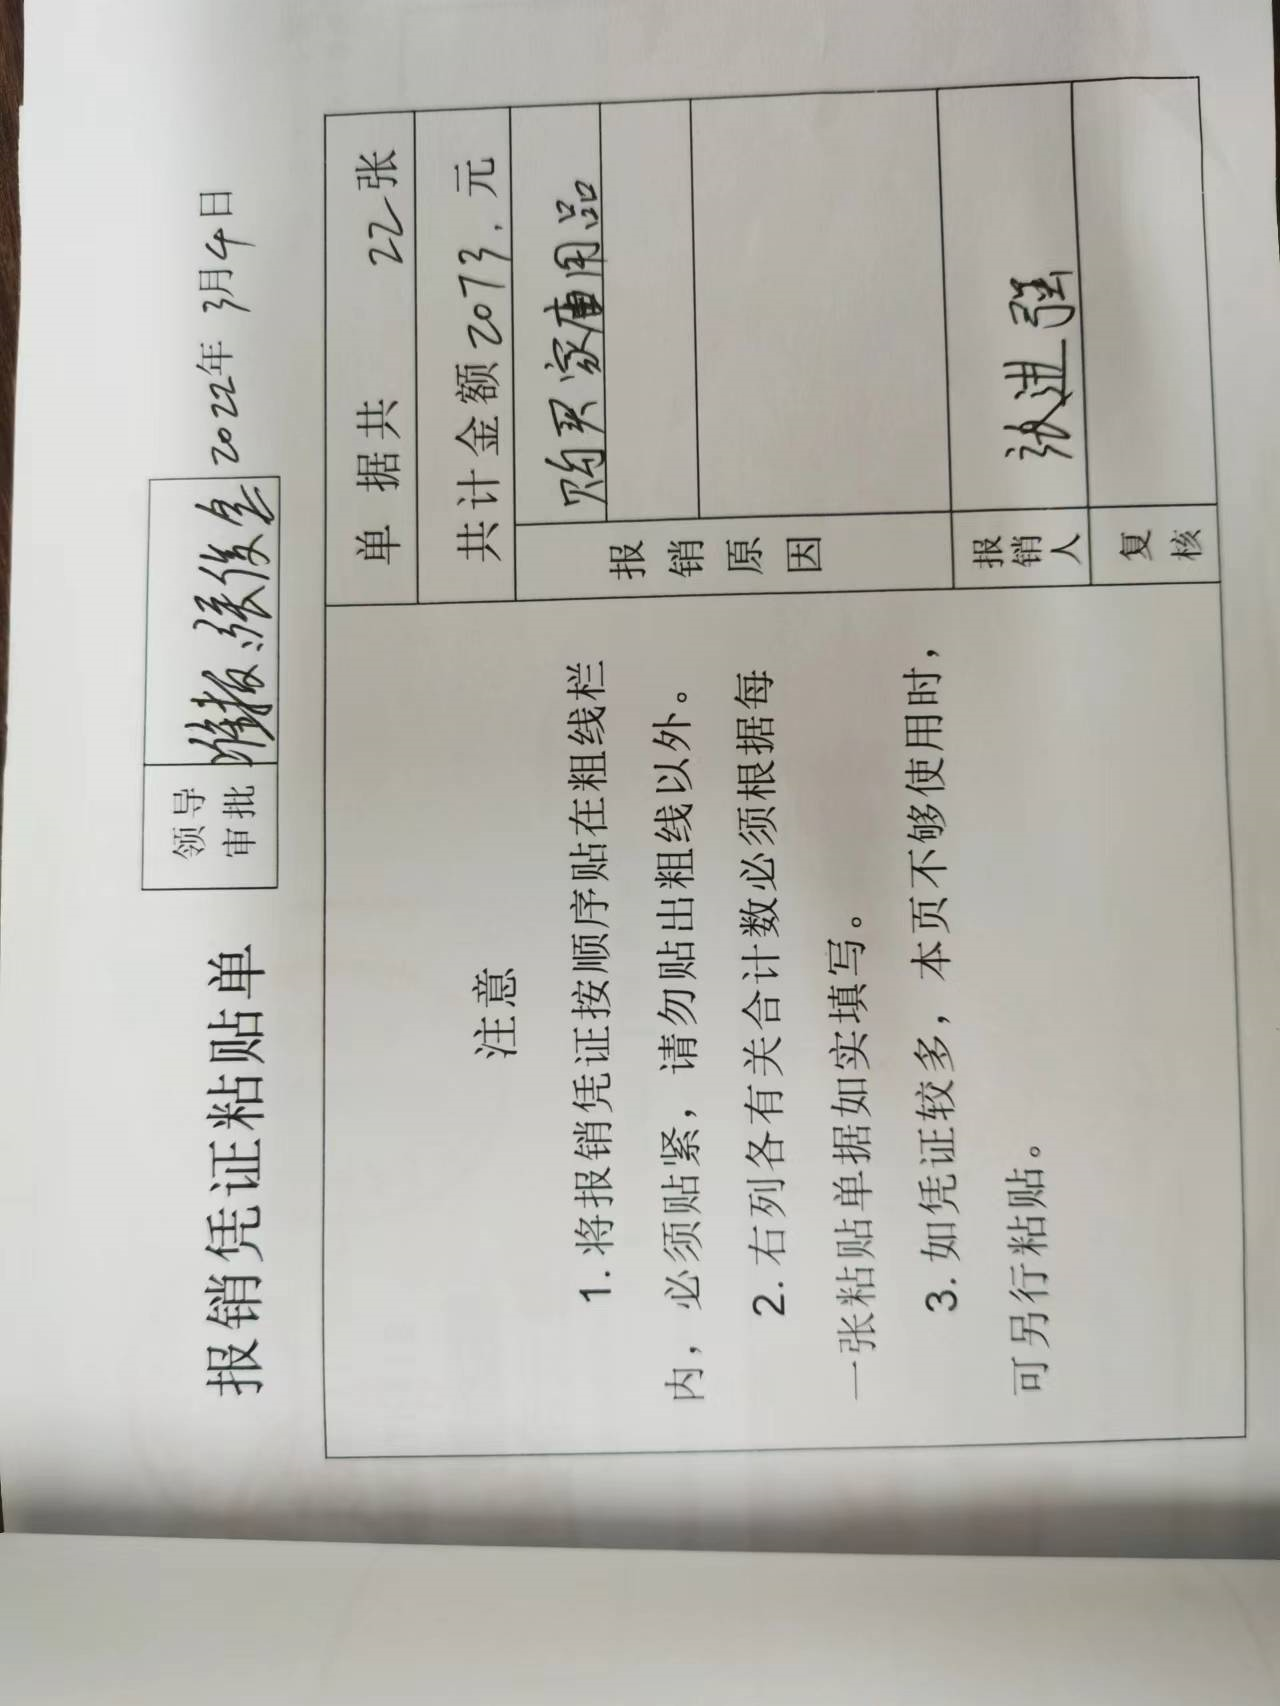 报销凭证粘贴单
领导审批 准报 张俊
2022年3月4日
注意
1. 将报销凭证按顺序贴在粗线栏
内，必须贴紧，请勿贴出粗线以外。
2. 右列各有关合计数必须根据每
一张粘贴单据如实填写。
3. 如凭证较多，本页不够使用时，
可另行粘贴。
单据共 22张
共计金额2073.元
报销原因
购买家庙用品
报销人 张进强
复核